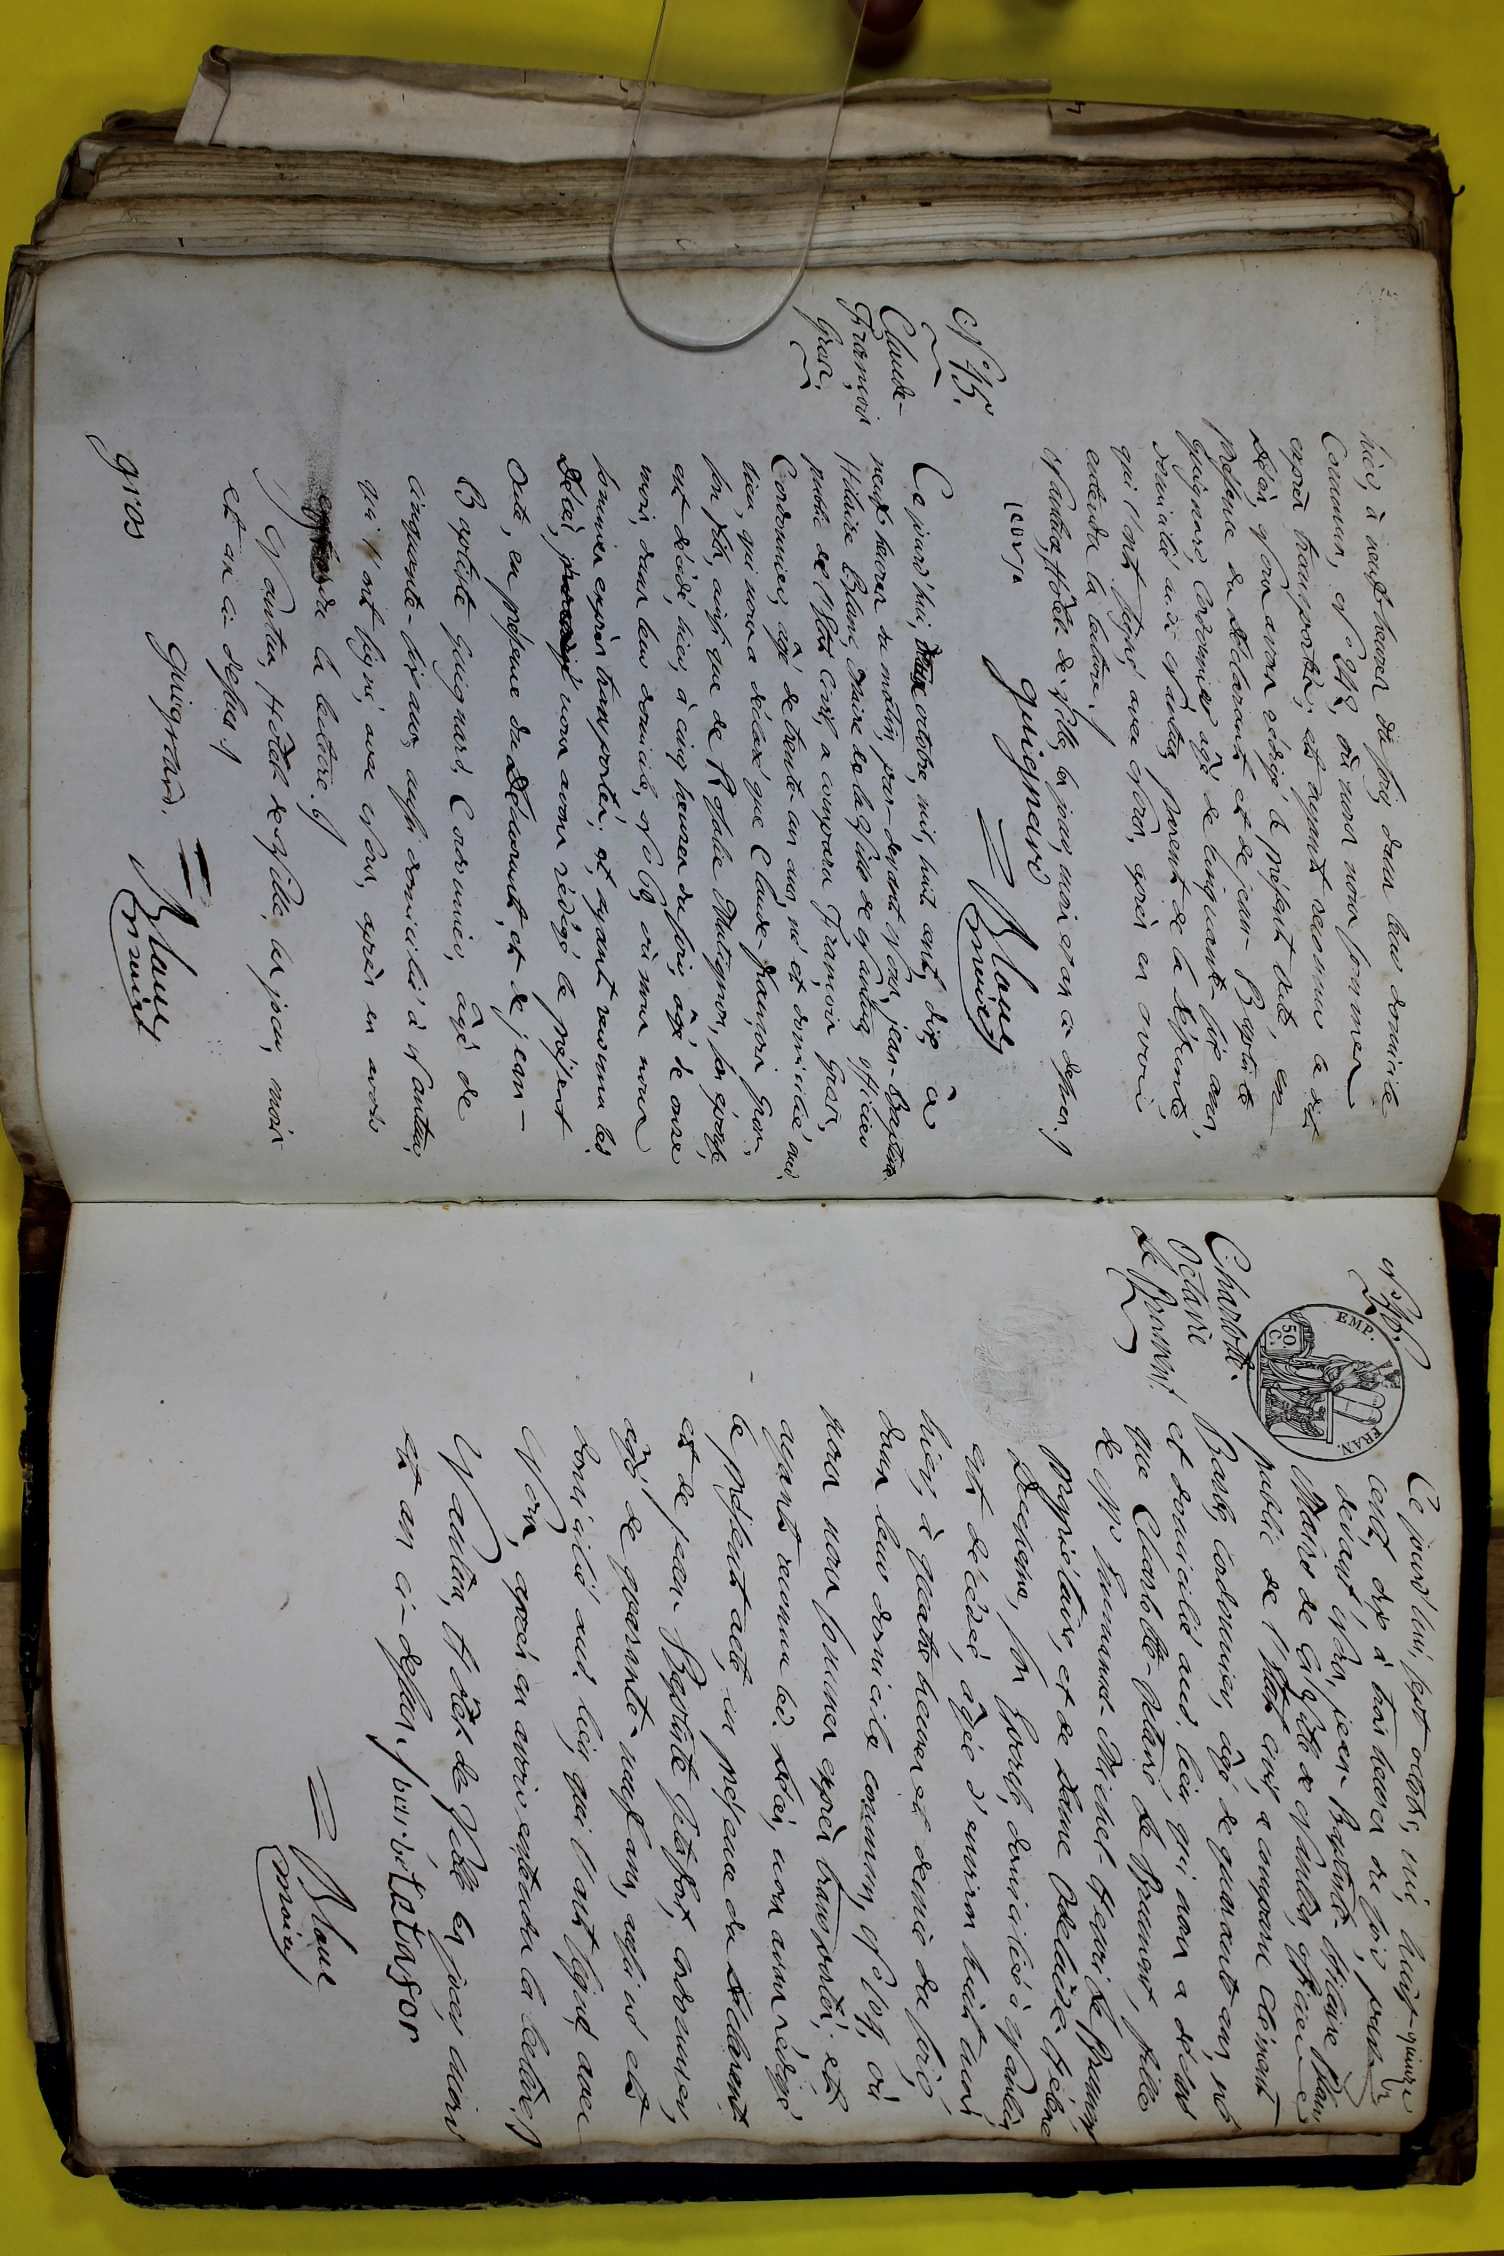 hier, à neuf heures du soir, dans leur domicile
Commun, N.º 248, où nous nous sommes
exprès transportés; et ayant reconnu le dit
décès, nous avons rédigé le présent acte, en
présence du déclarant et de jean-Baptiste
guignard, Cordonnier, âgé de cinquante-six ans,
domicilié aud. Nantua, parent de la défunte
qui l'ont signé avec Nous, après en avoir
entendu la lecture./
Nantua, Hôtel de Ville, les jour, mois et an ci dessus./
guignard
Blanc,
maire
N.º 45.
Claude-
François
Gros,
Ce jourd'hui, octobre, mil, huit cent, dix, à
neuf heures du matin, par-devant Nous, jean-Baptiste
Hilaire Blanc, Maire de la Ville de Nantua, officier
public de l'état civil, a comparu François Gros,
Cordonnier, âgé de trente-un ans, né et domicilié aud.
lieu, qui nous a déclaré que Claude-françois Gros,
son fils, ainsi que de Rosalie Mutignon, son épouse,
est décédé, hier, à cinq heures du soir, âgé de onze
mois, dans leur domicile, N.º 69, où nous nous
sommes exprès transportés; et ayant reconnu led.
Décès, nous avons rédigé le présent
acte, en présence du Déclarant, et de jean-
Baptiste guignard, Cordonnier, âgé de
cinquante-six ans, aussi domicilié à Nantua,
qui l'ont signé, avec Nous, après en avoir
entendu la lecture./
Nantua, Hôtel de Ville, les jour, mois
et an ci-dessus./
gros
guignard.
Blanc
maire
N.º 46.
EMP.
FRAN.
50
C.
Charlotte-
Octavie
de Brennent.
Ce jourd'hui, sept octobre, mil, huit
cent, dix à trois heures du soir, par
devant Nous, jean-Baptiste-hilaire Blanc
Maire de la Ville de Nantua, officier
public de l'état civil, a comparu Clément
Bande, Cordonnier, âgé de quarante ans, né
et domicilié aud. lieu, qui nous a déclaré
que Charlotte-Octavie de Brennent, fille
de Mr. Emmanuel-Michel-Henri de Brennent,
propriétaire, et de Dame Adélaïde-Hélène
Duchesne, son Epouse, domiciliés à Nantua
est décédée, âgée d'environ huit mois
hier, à quatre heures et demie du soir,
dans leur domicile commun, N.º 107, où
nous nous sommes exprès transportés; et
ayant reconnu led. décès, nous avons rédigé
le présent acte, en présence du déclarant
et de jean-Baptiste Setafort, cordonnier,
âgé de quarante-neuf ans, aussi né et
domicilié aud. lieu, qui l'ont signé, avec
Nous, après en avoir entendu la lecture./
Nantua, Hôtel de Ville les jour, mois
et an ci-dessus./
Blanc
maire